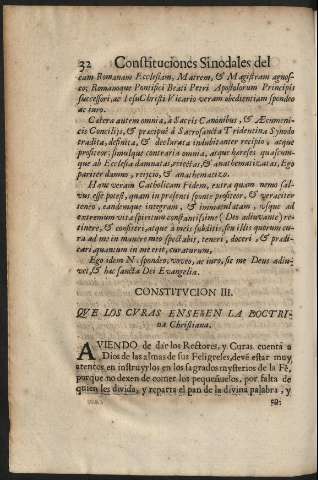 32 Constituciones Sinodales del
cam Romanam Ecclesiam, Matrem, & Magistram agnos-
co; Romanoque Pontifici Beati Petri Apostolorum Principis
successori, ac Iesu Christi Vicario veram obedientiam spondeo
ac iuro.
Cætera autem omnia, à Sacris Canonibus, & Æcumeni-
cis Concilijs, & præcipuè à Sacrosancta Tridentina Synodo
tradita, definita, & declarata indubitanter recipio, atque
profiteor; simulque contraria omnia, atque hæreses quascum-
que ab Ecclesia damnatas, reiectas, & anathematizatas, Ego
pariter damno, reijcio, & anathematizo.
Hanc veram Catholicam Fidem, extra quam nemo sal-
vus esse potest, quam in præsenti sponte profiteor, & veraciter
teneo, eandemque integram, & immaculatam, vsque ad
extremum vitæ spiritum constantissimè (Deo adiuvante) re-
tinere, & confiteri, atque à meis subditis, seu illis quorum cu-
ra ad me in munere meo spectabit, teneri, doceri, & prædi-
cari, quantum in me erit, curaturum,
Ego idem N. spondeo, voveo, ac iuro, sic me Deus adiu-
vet, & hæc sancta Dei Evangelia.
CONSTITVCION III.
QVE LOS CVRAS ENSEñEN LA DOCTRI-
na Christiana.
AVIENDO de dar los Rectores, y Curas cuenta à
Dios de las almas de sus Feligreses, deve estar muy
atentos en instruyrlos en los sagrados mysterios de la Fè,
porque no dexen de comer los pequeñuelos, por falta de
quien les divida, y reparta el pan de la divina palabra, y